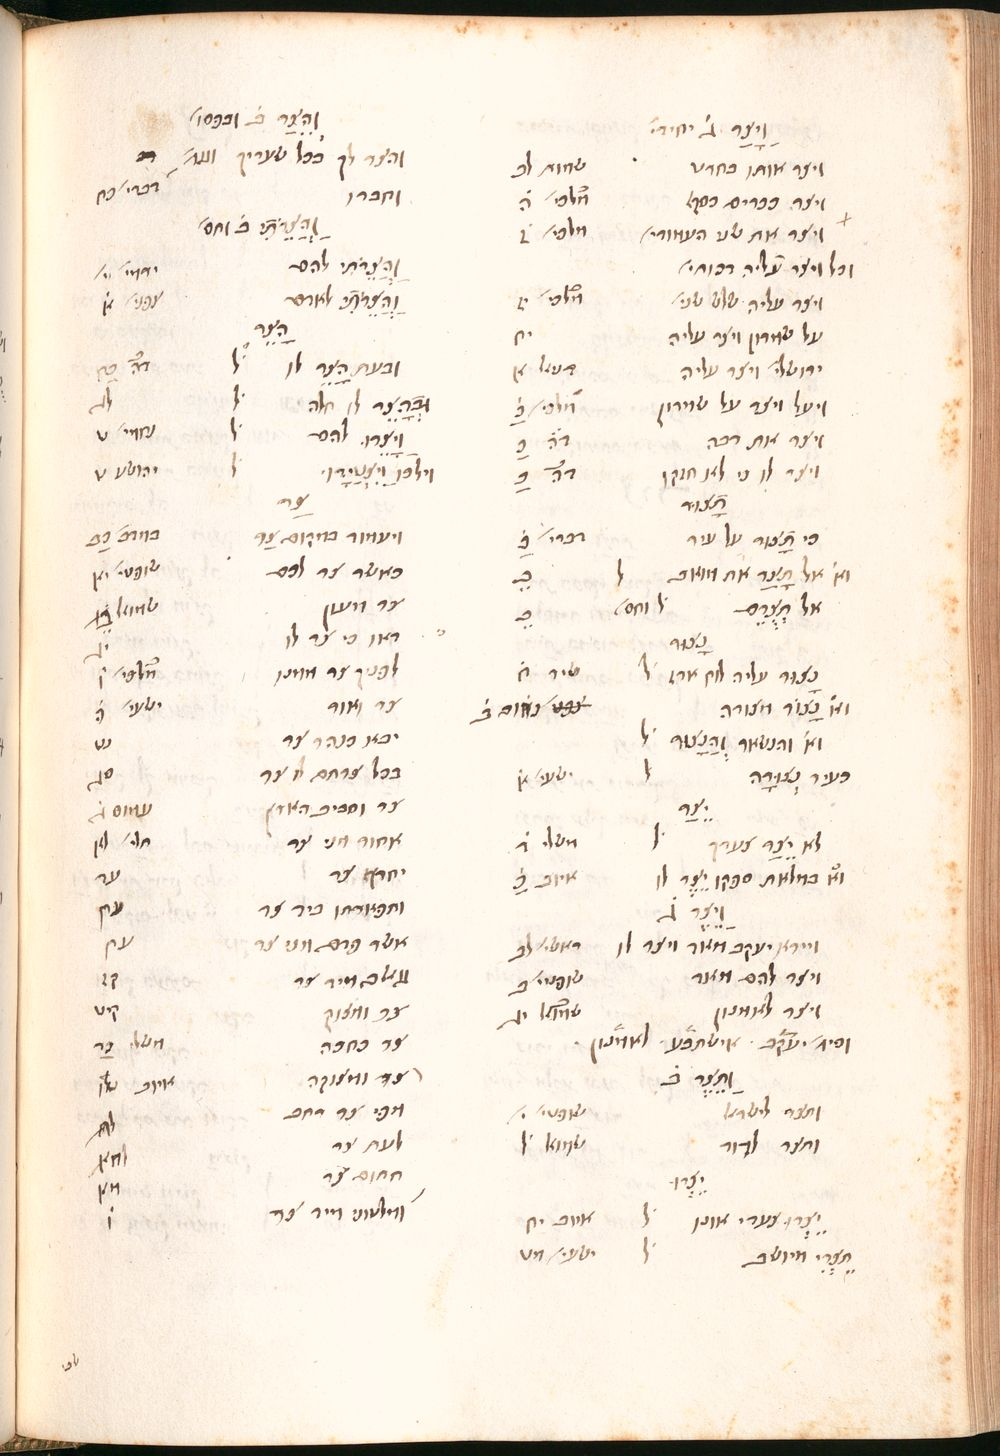 וַיָּצַר ג׳ יחידי׳
ויצר אותו בחרט שמות לב
ויצר ככרים כסף מלכי׳ ה
ויצר את שני העמודי׳ מלכי׳ ז
וכל ויצר עליה דכותי׳
ויצר עליה שלש שני׳ מלכי׳ יז
על שמרון ויצר עליה יח
ירושל׳ ויצר עליה דניאל א
ויעל ויצר על שמרון מלכי׳ ו
ויצר את רבה דה׳ כ
ויצר לו כי לא חזקו דה׳ כח
תָּצוּר
כי תָצור על עיר דברי׳ כ
וא׳ אל תָּצַר את מואב ל ב
אל תְּצֻרֵם ל וחס׳ ב
נָצוּר
נָצור עליה לוח ארז ל שיר ח
נחום ב
וא׳ והנשאר וְהַנָּצוּר ל
כעיר נְצוּרָה ל ישעי׳ א
יֵצַר
לא יֵצַר צעדך ל משלי ד
וא׳ במלאת ספקו יֵצֶר לו איוב כ
וַיֵּצֶר ג׳
ויירא יעקב מאד ויצר לו ראשי׳ לב
ויצר להם מאד שופטי׳ ב
ויצר לאמנון שמואל יג
וסימ׳ יעקב לאמנון
וַתֵּצֶר ב׳
ותצר לישראל שופטי׳ י
ותצר לדוד שמוא׳ ל
יֵצְרוּ
יֵצְרוּ צעדי אונו ל איוב יח
תֵּצְרִי מיושב ל ישעי׳ מט
וְהֵצַר ב׳ ובפסו׳
והצר לך בכל שעריך
וחברו דברי׳ כח
וַהֲצֵרֹתִי ב׳ וחס׳
וַהֲצֵרֹתִי להם ירמי׳ י
וַהֲצֵרֹתִי לאדם צפני׳ א
הָצֵר
ובעת הָצֵר לו ל דה׳ כח
וּכְהָצֵר לו חלה ל לג
וַיָּצֵרוּ להם ל נחמי׳ ט
וילכו וַיִּצְטַיָּרוּ ל יהושע ט
צַר
ויעמוד במקום צַר במדב׳ כב
כאשר צר לכם שופטי׳ יא
צר מעון שמואל ב
ראו כי צר לו יג
לפניך צר ממנו מלכי׳ ו
צר ואור ישעי׳ ה
יבא כנהר צר נט
בכל צרתם לו צר סג
צר וסביב הארץ עמוס ג
אחור מני צר תלי׳ מד
יחרף צר עד
ותפארתו ביד צר עח
אשר פדם מני צר עח
גאלם מיד צר קז
צר ומצוק קיט
צר כחכה משלי כד
צר ומצוקה איוב
מפי צר רחב לו
לעת צר לח
חתום צר מא
ומלטוני מיד צר ו
שכו׳